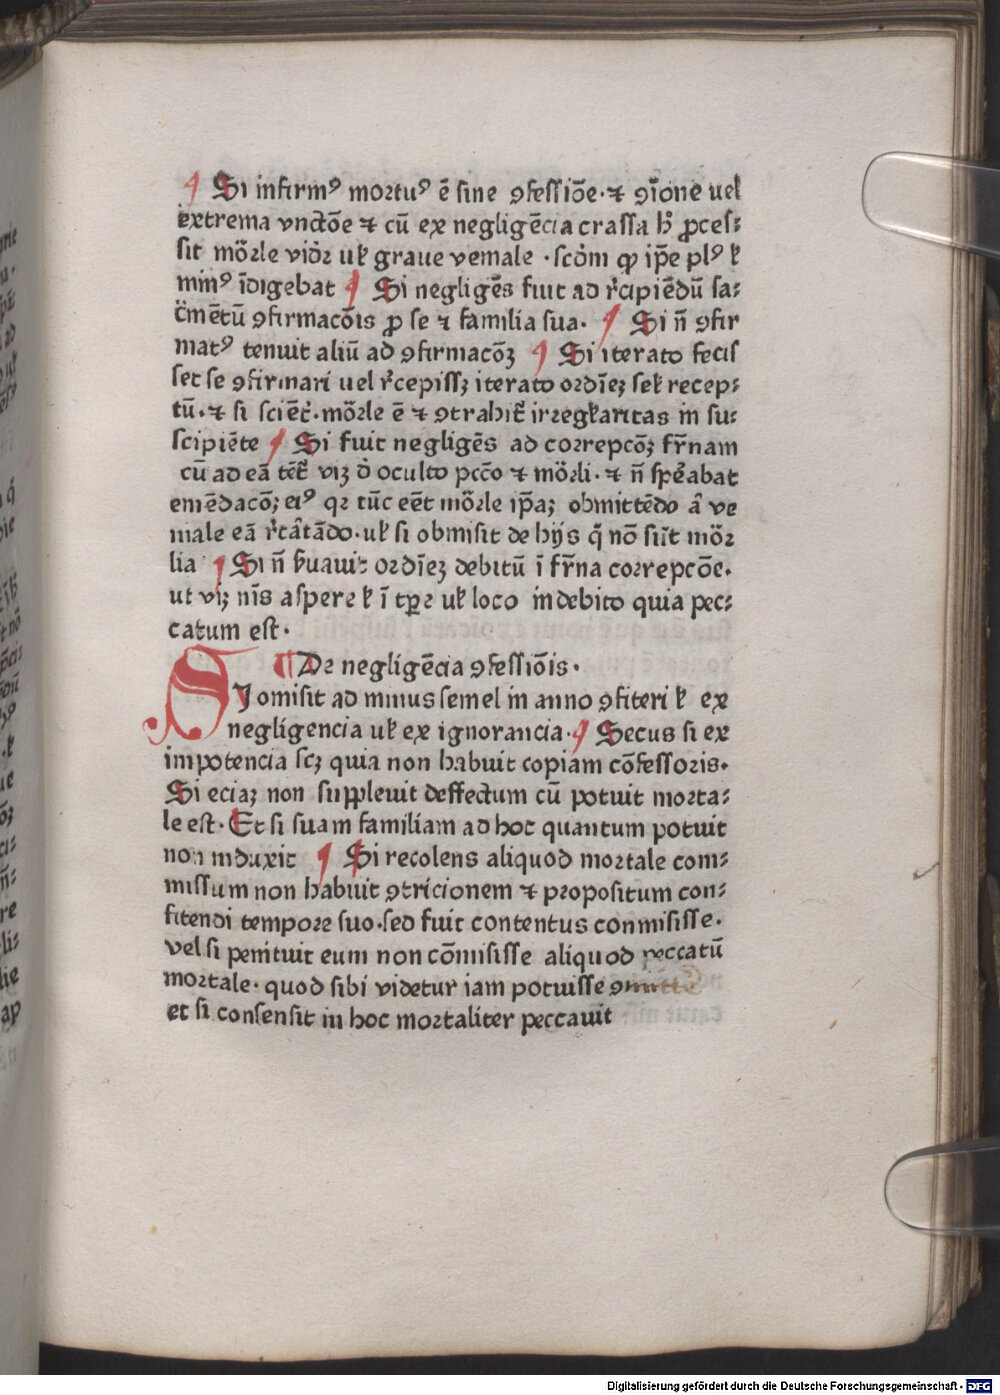 ¶ Si infirmꝰ mortuꝰ ē sine ꝯfessiōe·⁊ ꝯ̄ione uel
extrema vnctōe ⁊ cū ex negligēcia crassa h̾ ꝓces⸗
sit mōrle vid̄r ul̵ graue vemale ·scd̄m ꝙ ip̄e plꝰ l̵
minꝰ īdigebat ¶ Si negligēs fuit ad r̄cipiēdū sa⸗
c̄mētū ꝯfirmacōis ꝓ se ⁊ familia sua· ¶ Si n̄ ꝯfir
matꝰ tenuit aliū ad ꝯfirmacōꝫ ¶ Si iterato fecis
set se ꝯfirmari uel r̄cepissꝫ iterato ordīeꝫ sel̵ recep⸗
tū·⁊ si sciēt̄·mōrle ē ⁊ ꝯtrahit̄ irregl̵aritas in su⸗
scipiēte ¶ Si fuit negligēs ad correpcōꝫ fr̄nam
cū ad eā tēt̄ viꝫ d̄ oculto pcc̄o ⁊ mōrli·⁊ n̄ sperabat
emēdacōꝫ eiꝰ qꝛ tūc eēt mōrle ip̄aꝫ obmittēdo a̅ ve
male eā r̄tātādo·ul̵ si obmisit de hijs q̄ nō sūt mōr
lia ¶ Si n̄ ẜuauit ordīeꝫ debitū ī fr̄na correpcōe·
ut viꝫ nīs aspere l̵ ī tꝑe ul̵ loco indebito quia pec⸗
catum est·
¶ De negligēcia ꝯfessiōis·
SI omisit ad minus semel in anno ꝯfiteri l̵ ex
negligencia ul̵ ex ignorancia·¶ Secus si ex
impotencia scꝫ quia non habuit copiam cōfessoris·
Si eciaꝫ non suppleuit deffectum cū potuit morta⸗
le est·Et si suam familiam ad hoc quantum potuit
non induxit ¶ Si recolens aliquod mortale com⸗
missum non habuit ꝯtricionem ⁊ propositum con⸗
fitendi tempore suo·sed fuit contentus conmisisse·
vel si penituit eum non cōmisisse aliquod peccatū
mortale·quod sibi videtur iam potuisse
et si consensit in hoc mortaliter peccauit
Digitalisierung gefördert durch die Deutsche Forschungsgemeinschaft · DFG